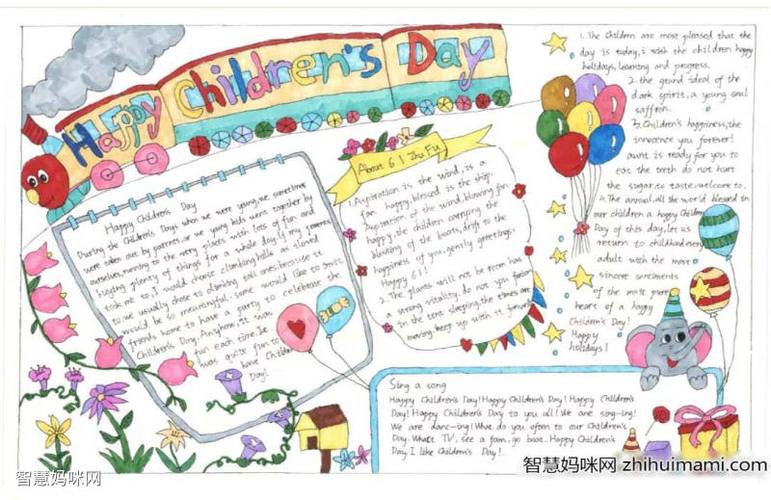 Happy Children's Day
Happy Children's Day
During the Children's Days when we were young, we sometimes
were taken out by parents, or we young kids went together by
ourselves, running to the very places with lots of fun and
staying plenty of things for a whole day. if my parents
took me to, I would choose climbing hills as
to me usually chose to climbing tall ones, because it
would be so meaningful. some would like to
friends home to have a party to celebrate the
Children's Day. Anyhow, it was
fun each time. I
was quite fun to
have Children
Day!
BLOE
About 6 1 Zhu Fu
1. Aspiration is the wind, is a
fan happy, blessed is the ship.
Aspiration of the wind, blowing fan
happy, the children carrying the
blessing of the boats, drift to the
happiness of you, gently greeting:
Happy 61!
2. The plants will not be from
a strong vitality. do not you
in the tent sleeping, the times are
moving, keep up with it
1. The Children are most pleased that the
day is today, i wish the children happy
holidays, learning and progress.
2. the grand ideal of the
dark spirit, a young
saffron.
3. Children's happiness, the
innocence you forever!
aunt is ready for you to
eat the teeth do not hurt
the sugar, to taste, welcome to.
4. The annual, all the world blessed in
our children a happy Children's
Day of this day, let us
return to childhood,
adult with the most
sincere sentiments
of the most pure
heart of a happy
Children's Day!
Happy
holidays!
Sing a song
Happy Children's Day! Happy Children's Day! Happy Children's
Day! Happy Children's Day to you all! We are sing-ing!
We are danc-ing! What do you often to our Children's
Day. Watch TV, see a fam, go boat. Happy Children's
Day. I like Children's Day!
智慧妈咪网
智慧妈咪网 zhihuimami.com